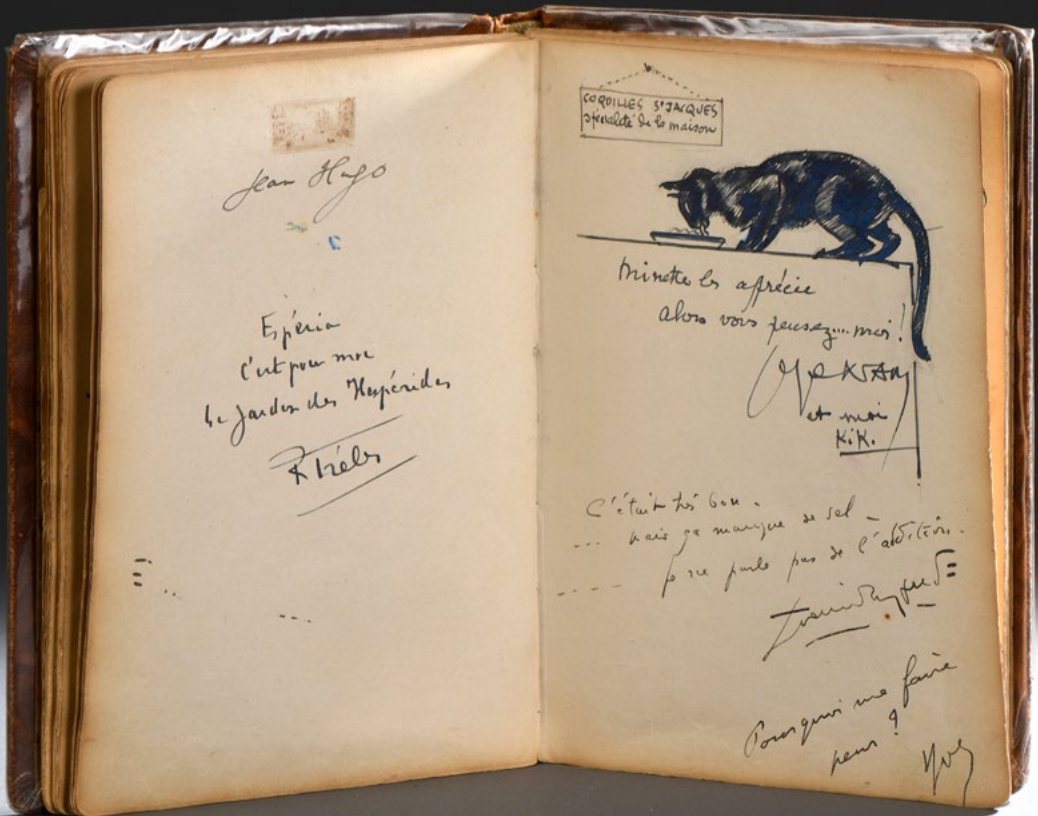 Jean Hugo
Espéria
c'est pour moi
le Jardin des Hespérides
COQUILLES St JACQUES
spécialité de la maison
Minette les apprécie
alors vous pensez... moi!
et moi
KiK.
C'était très bon -
... mais ça manque de sel -
.... je ne parle pas de l'addition.
Pourquoi me faire
peur ?
Yves